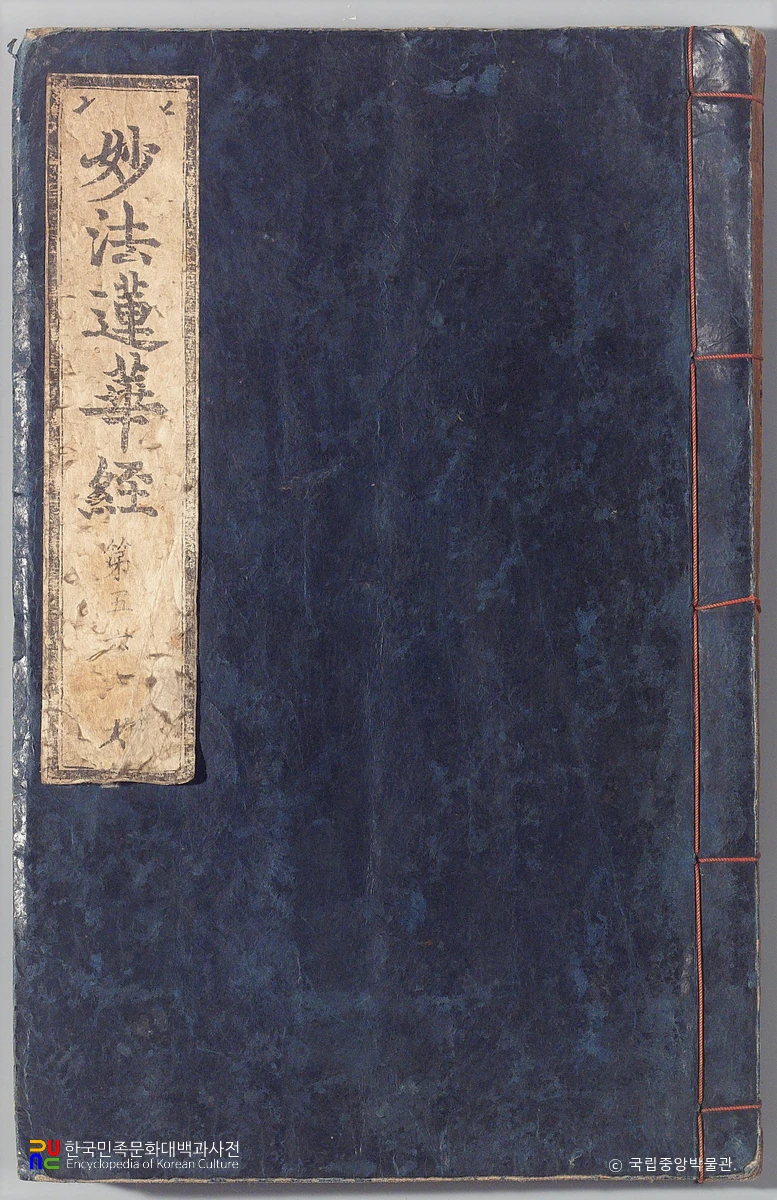 妙法蓮華経
第五
한국민족문화대백과사전
Encyclopedia of Korean Culture
© 국립중앙박물관